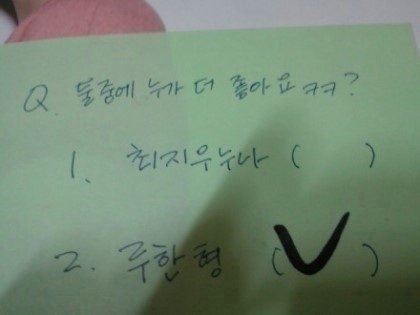 Q. 둘중에 누가 더 좋아요 ㅋㅋ?
1. 최지우누나 ( )
2. 루한형 (✓)